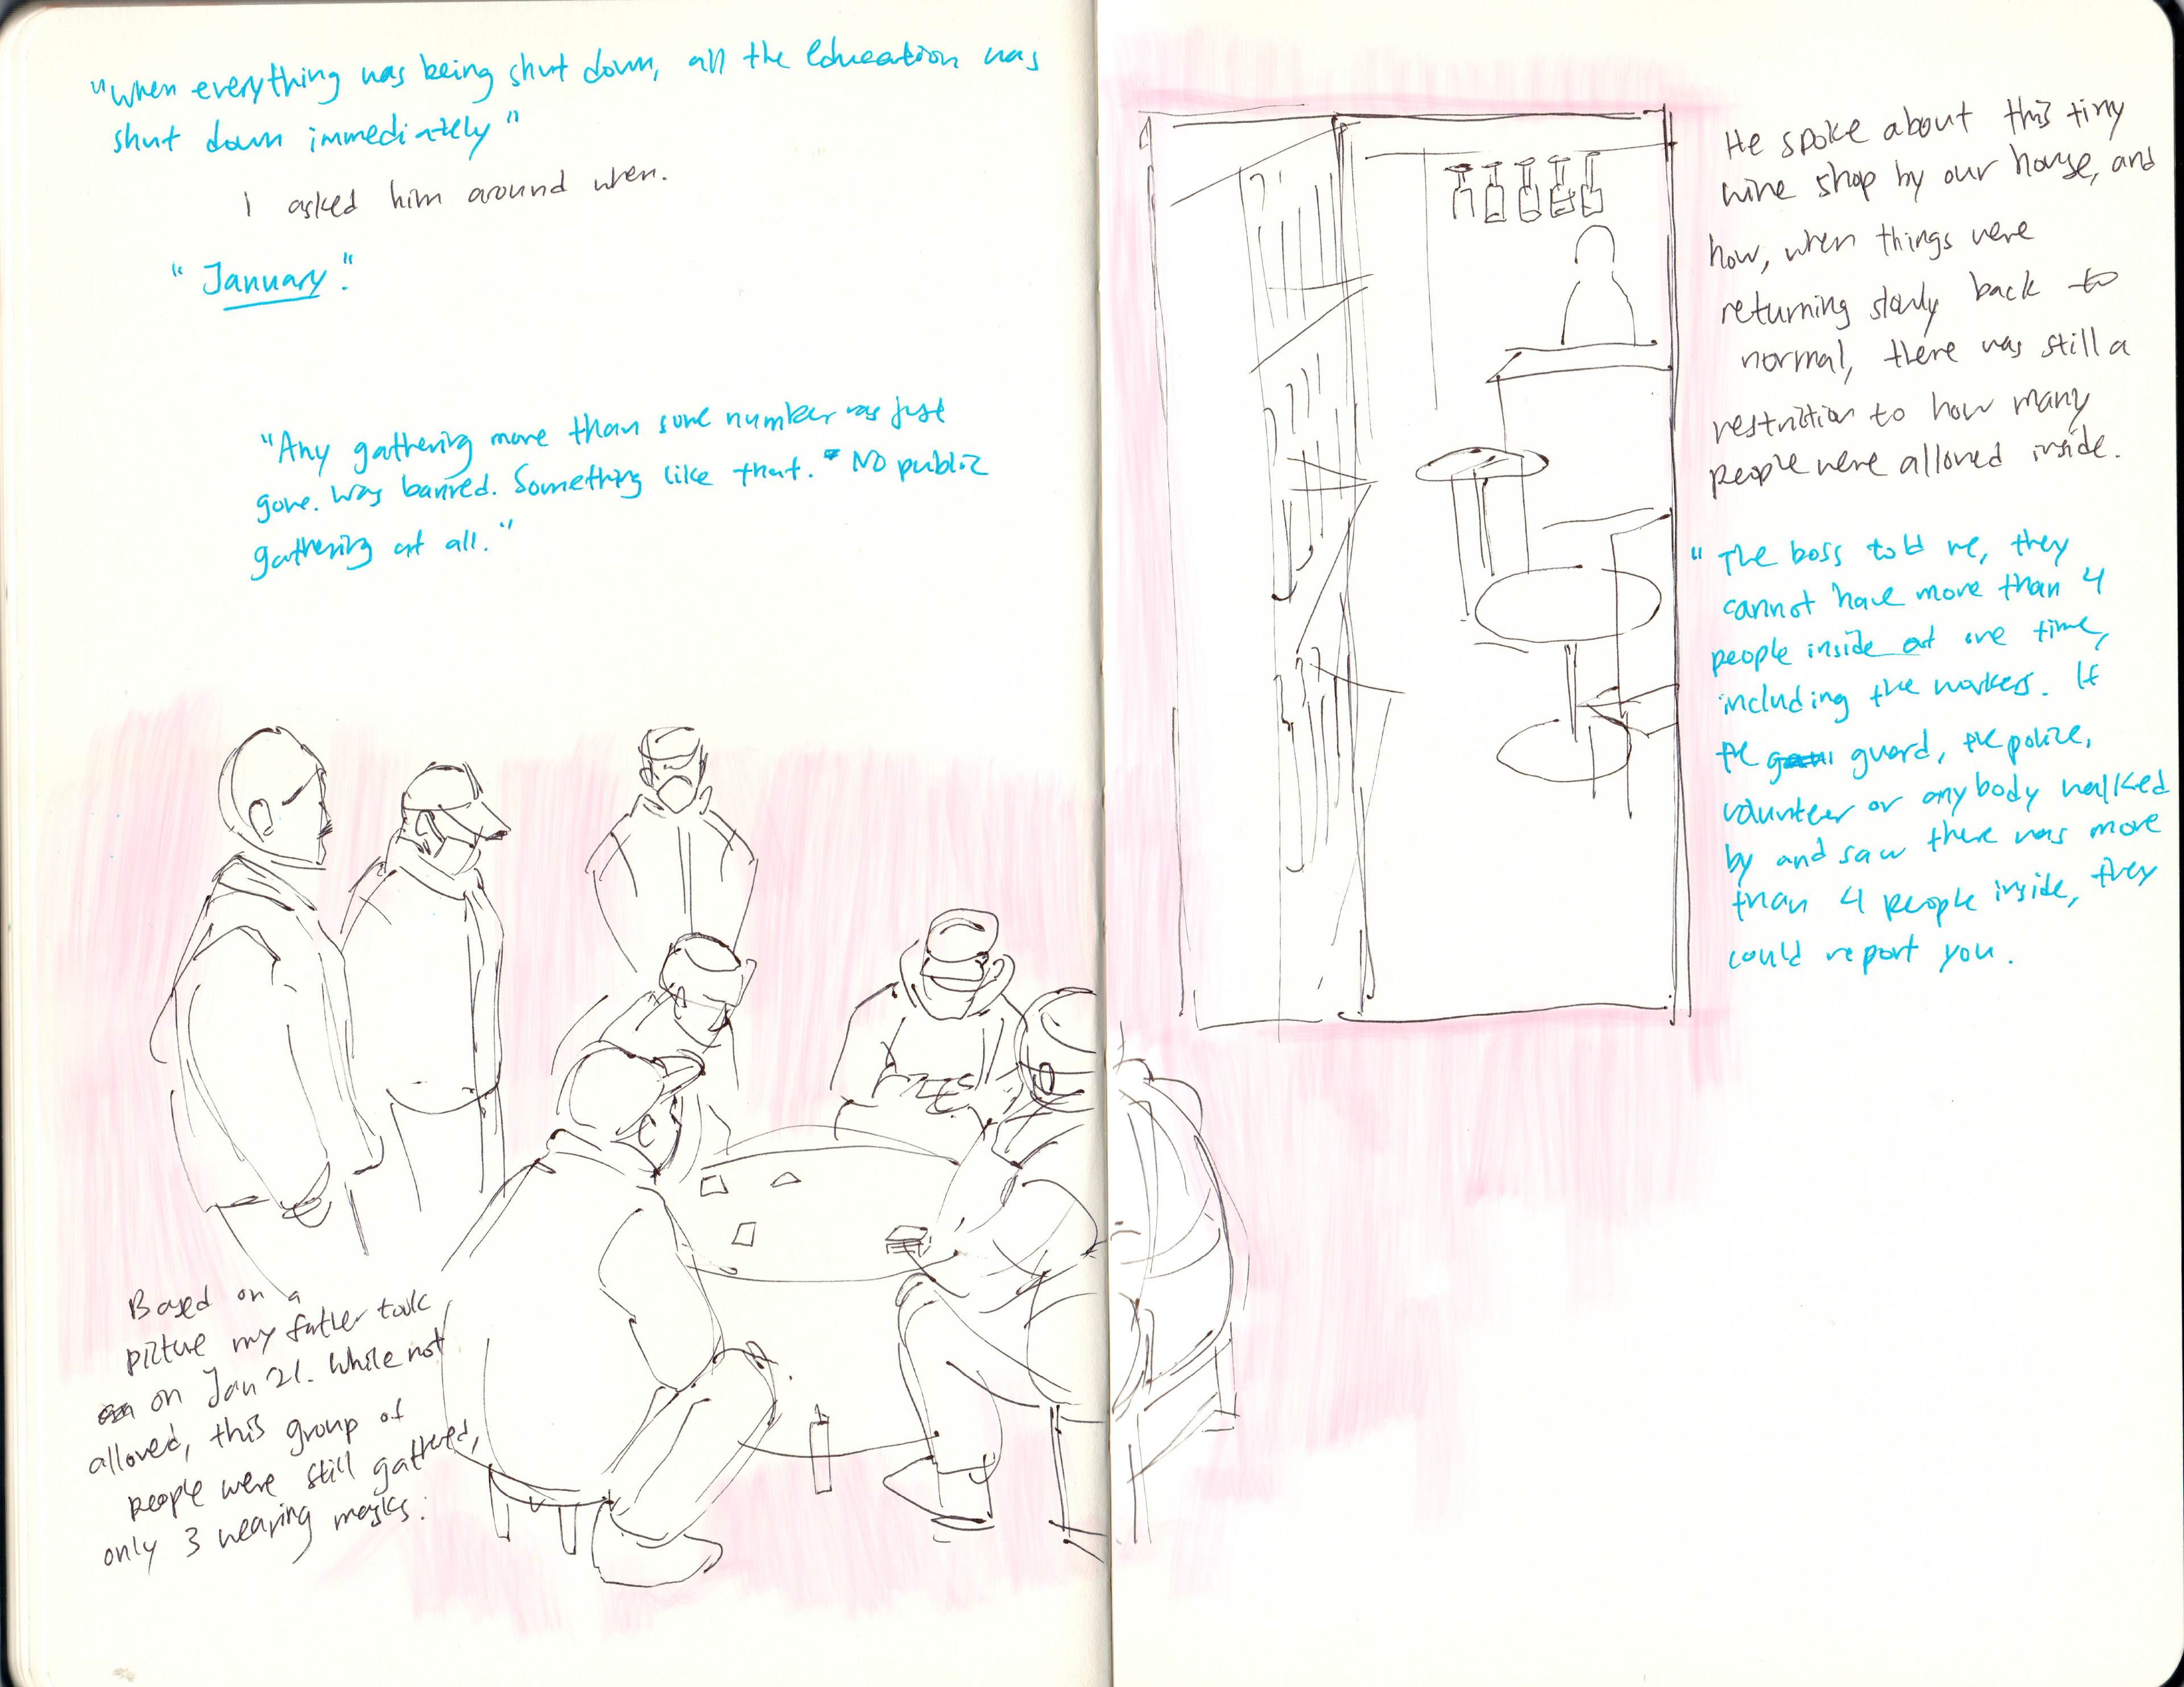 "When everything was being shut down, all the education was
shut down immediately"
I asked him around when.
"January."
"Any gathering more than some number was just
gone. Was banned. Something like that. No public
gathering at all."
Based on a
picture my father took
on Jan 21. While not
allowed, this group of
people were still gathered,
only 3 wearing masks.
He spoke about this tiny
wine shop by our house, and
how, when things were
returning slowly back to
normal, there was still a
restriction to how many
people were allowed inside.
"The boss told me, they
cannot have more than 4
people inside at one time,
including the workers. If
the guard, the police,
volunteer or anybody walked
by and saw there was more
than 4 people inside, they
could report you.